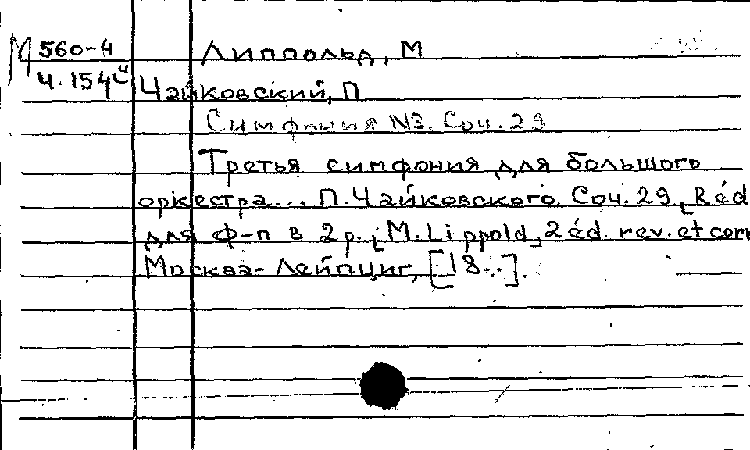 М 560-4 Липпольд, М
Ч.154 Чайковский, П
Симфония №3. Соч. 29
Третья симфония для большого
оркестра... П. Чайковского. Соч. 29, Réd
для ф-п в 2р. M. Lippold, 2 éd. rev. et corr
Москва-Лейпциг, [18..].